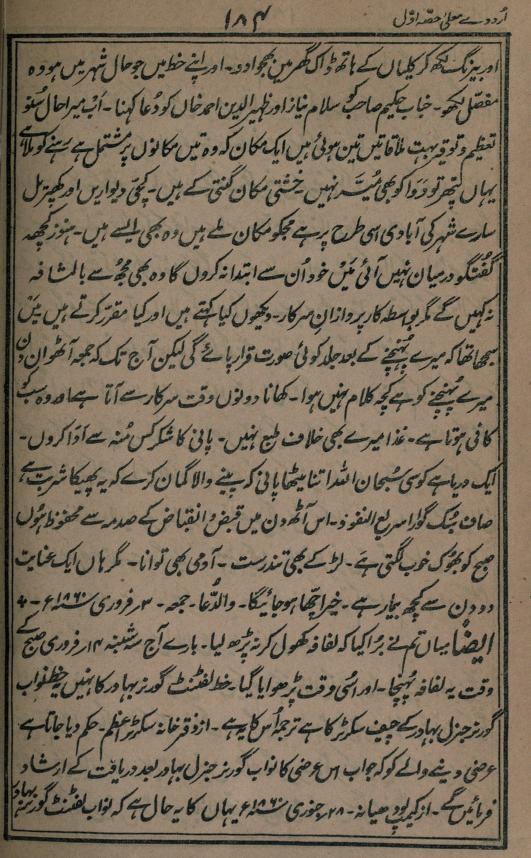 ۱۸۴ اُردوے معلیٰ حصّہ اوّل
اور بیرنگ لکھ کر کلیاں کے ہاتھ ڈاک گھر مین بھجوا دو۔ اور اپنے خط میں جو حال شہر میں ہو وہ
مفصل لکھو۔ جناب حکیم صاحب کو سلام نیاز اور ظہیر الدین احمد خان کو دُعا کہنا۔ اَب میرا حال سُنو
تعظیم و توقیر بہت ملاقاتیں تین ہوئی ہیں ایک مکان کہ وہ تین مکانوں پر مشتمل ہے رہنے کو ملا ہے
یہاں پتھر تو دَوا کو بھی میسّر نہیں۔ خشتی مکان گنتی کے ہیں۔ کچّی دیواریں اور کھپریل
سارے شہر کی آبادی اسی طرح پر ہے مجھکو مکان ملے ہیں وہ بھی ایسے ہیں۔ ہنوز کچھہ
گفتگو درمیان نہیں آئی مَیں خود اُن سے ابتدا نہ کروں گا وہ بھی مجھ سے بالمشافہ
نہ کہیں گے مگر بواسطہ کار پردازانِ سرکار۔ دیکھوں کیا کہتے ہیں اور کیا مقرر کرتے ہیں مَیں
سمجھا تھا کہ میرے پہُنچنے کے بعد جلد کوئی صورت قرار پائے گی لیکن آج تک کہ جمعہ آٹھواں دن
میرے پہُنچنے کو ہے کچھ کلام نہیں ہوا۔ کھانا دونوں وقت سرکار سے آتا ہے اور وہ سب کو
کافی ہوتا ہے۔ غذا میرے بھی خلاف طبع نہیں۔ پانی کا شکر کس مُنہ سے اَدا کروں۔
ایک دریا ہے کوسی سُبحان اللہ اتنا میٹھا پانی کہ پینے والا گمان کرے کہ یہ پھیکا شربت ہے
صاف سُبک گوارا سریع النفوذ۔ اس آٹھ دن میں قبض و انقباض کے صدمہ سے محفوظ ہُوں
صبح کو بھُوک خوب لگتی ہے۔ لڑکے بھی تندرست۔ آدمی بھی توانا۔ مگر ہاں ایک عنایت
دو دن سے کچھ بیمار ہے۔ خیر اچّھا ہو جائیگا۔ والدُّعا۔ جمعہ۔ ۳؍ فروری سنہ ۱۸۶۰ء۔
ایضًا میاں تم نے بُرا کیا کہ لفافہ کھول کر نہ پڑھ لیا۔ بارے آج سہ شنبہ ۱۴؍ فروری صبح کے
وقت یہ لفافہ پہُنچا۔ اور اُسی وقت پڑھوایا گیا۔ خط لفٹنٹ گورنر بہادر کا نہیں یہ خط نواب
گورنر جنرل بہادر کے چیف سکرٹر کا ہے ترجمہ اُس کا یہ ہے۔ از دفتر خانہ سکرٹر اعظم۔ حکم دیا جاتا ہے
عرضی دینے والے کو کہ جواب اس عرضی کا نواب گورنر جنرل بہادر بعد دریافت کے ارشاد
فرمائیں گے۔ از کیمپ لودھیانہ۔ ۲۸؍ جنوری سنہ ۱۸۶۰ء یہاں کا یہ حال ہے کہ نواب لفٹنٹ گورنر بہادر